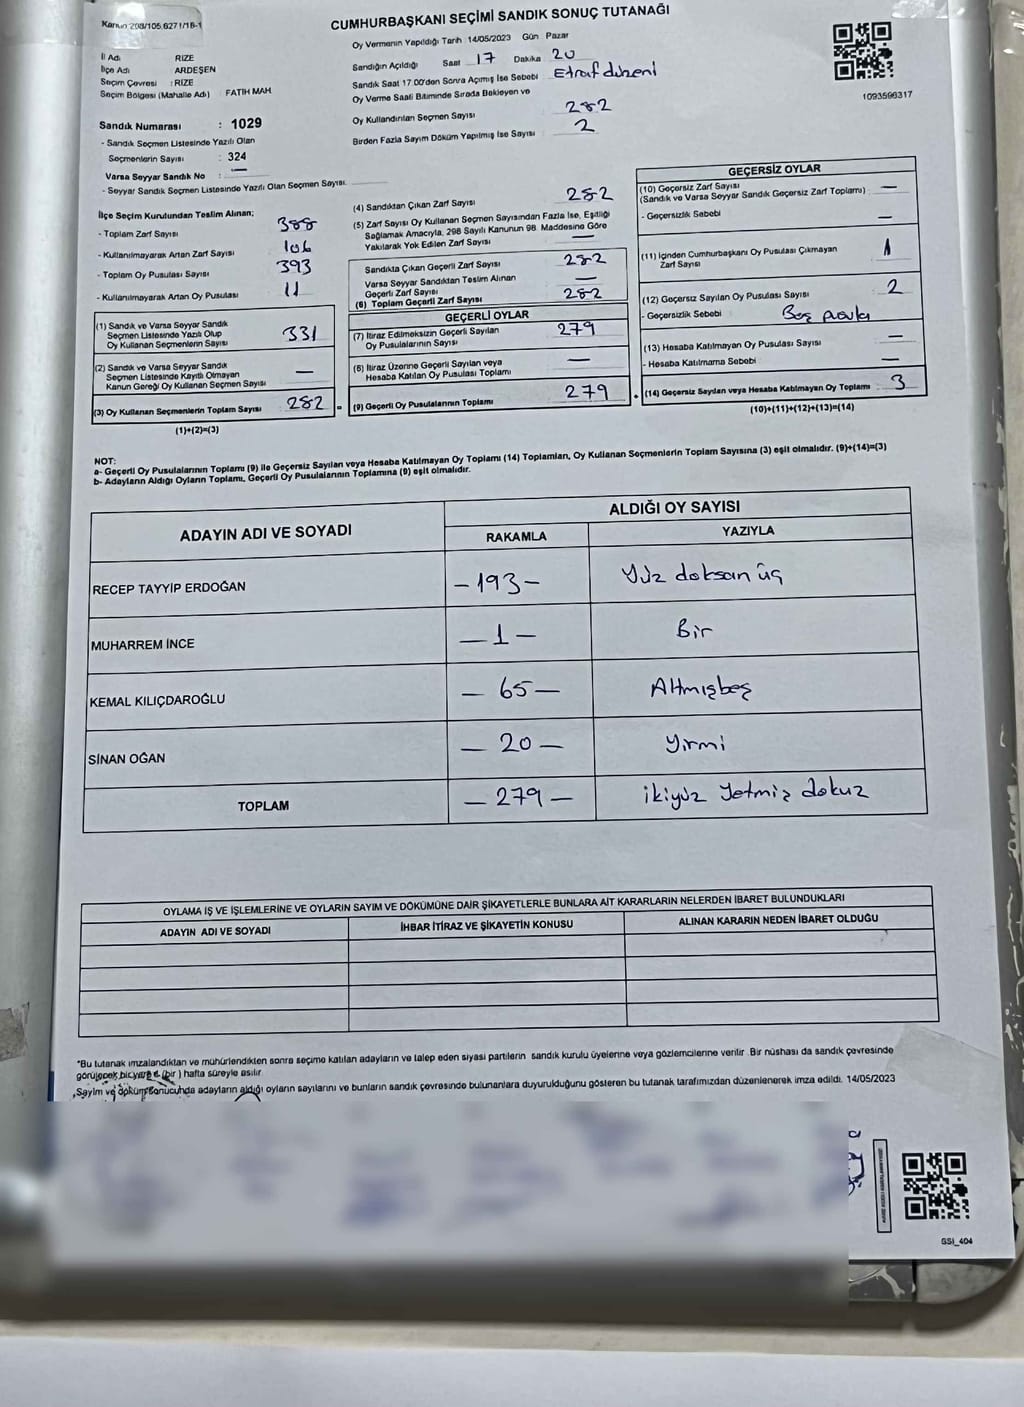 Kanun 298/105,6271/18-1
CUMHURBAŞKANI SEÇİMİ SANDIK SONUÇ TUTANAĞI
Oy Vermenin Yapıldığı Tarih 14/05/2023 Gün Pazar
İl Adı RİZE
İlçe Adı ARDEŞEN
Seçim Çevresi : RİZE
Seçim Bölgesi (Mahalle Adı) FATİH MAH
Sandığın Açıldığı Saat 17 Dakika 20
Sandık Saat 17.00'den Sonra Açımış İse Sebebi Etraf düzeni
Oy Verme Saati Bitiminde Sırada Bekleyen ve
Oy Kullandırılan Seçmen Sayısı 282
Birden Fazla Sayım Döküm Yapılmış İse Sayısı 2
1093596317
Sandık Numarası : 1029
- Sandık Seçmen Listesinde Yazılı Olan
Seçmenlerin Sayısı : 324
Varsa Seyyar Sandık No : —
- Seyyar Sandık Seçmen Listesinde Yazılı Olan Seçmen Sayısı.
İlçe Seçim Kurulundan Teslim Alınan;
- Toplam Zarf Sayısı 388
- Kullanılmayarak Artan Zarf Sayısı 106
- Toplam Oy Pusulası Sayısı 393
- Kullanılmayarak Artan Oy Pusulası 11
(1) Sandık ve Varsa Seyyar Sandık
Seçmen Listesinde Yazılı Olup
Oy Kullanan Seçmenlerin Sayısı 331
(2) Sandık ve Varsa Seyyar Sandık
Seçmen Listesinde Kayıtlı Olmayan
Kanun Gereği Oy Kullanan Seçmen Sayısı —
(3) Oy Kullanan Seçmenlerin Toplam Sayısı 282 =
(1)+(2)=(3)
(4) Sandıktan Çıkan Zarf Sayısı 282
(5) Zarf Sayısı Oy Kullanan Seçmen Sayısından Fazla İse, Eşitliği
Sağlamak Amacıyla, 298 Sayılı Kanunun 98. Maddesine Göre
Yakılarak Yok Edilen Zarf Sayısı —
Sandıkta Çıkan Geçerli Zarf Sayısı 282
Varsa Seyyar Sandıktan Teslim Alınan
Geçerli Zarf Sayısı —
(6) Toplam Geçerli Zarf Sayısı 282
GEÇERLİ OYLAR
(7) İtiraz Edilmeksizin Geçerli Sayılan
Oy Pusulalarının Sayısı 279
(8) İtiraz Üzerine Geçerli Sayılan veya
Hesaba Katılan Oy Pusulası Toplamı —
(9) Geçerli Oy Pusulalarının Toplamı 279
GEÇERSİZ OYLAR
(10) Geçersiz Zarf Sayısı
(Sandık ve Varsa Seyyar Sandık Geçersiz Zarf Toplamı) —
- Geçersizlik Sebebi —
(11) İçinden Cumhurbaşkanı Oy Pusulası Çıkmayan
Zarf Sayısı 1
(12) Geçersiz Sayılan Oy Pusulası Sayısı 2
- Geçersizlik Sebebi Boş pusula
(13) Hesaba Katılmayan Oy Pusulası Sayısı —
- Hesaba Katılmama Sebebi —
(14) Geçersiz Sayılan veya Hesaba Katılmayan Oy Toplamı 3
(10)+(11)+(12)+(13)=(14)
NOT:
a- Geçerli Oy Pusulalarının Toplamı (9) ile Geçersiz Sayılan veya Hesaba Katılmayan Oy Toplamı (14) Toplamları, Oy Kullanan Seçmenlerin Toplam Sayısına (3) eşit olmalıdır. (9)+(14)=(3)
b- Adayların Aldığı Oyların Toplamı, Geçerli Oy Pusulalarının Toplamına (9) eşit olmalıdır.
ADAYIN ADI VE SOYADI
ALDIĞI OY SAYISI
RAKAMLA YAZIYLA
RECEP TAYYİP ERDOĞAN – 193 – Yüz doksan üç
MUHARREM İNCE – 1 – Bir
KEMAL KILIÇDAROĞLU – 65 – Altmışbeş
SİNAN OĞAN – 20 – Yirmi
TOPLAM – 279 – ikiyüz Yetmiş dokuz
OYLAMA İŞ VE İŞLEMLERİNE VE OYLARIN SAYIM VE DÖKÜMÜNE DAİR ŞİKAYETLERLE BUNLARA AİT KARARLARIN NELERDEN İBARET BULUNDUKLARI
ADAYIN ADI VE SOYADI İHBAR İTİRAZ VE ŞİKAYETİN KONUSU ALINAN KARARIN NEDEN İBARET OLDUĞU
*Bu tutanak imzalandıktan ve mühürlendikten sonra seçime katılan adayların ve talep eden siyasi partilerin sandık kurulu üyelerine veya gözlemcilerine verilir. Bir nüshası da sandık çevresinde
görülecek bir yere (bir ) hafta süreyle asılır.
Sayım ve döküm sonucunda adayların aldığı oyların sayılarını ve bunların sandık çevresinde bulunanlara duyurulduğunu gösteren bu tutanak tarafımızdan düzenlenerek imza edildi. 14/05/2023
SSİ_404